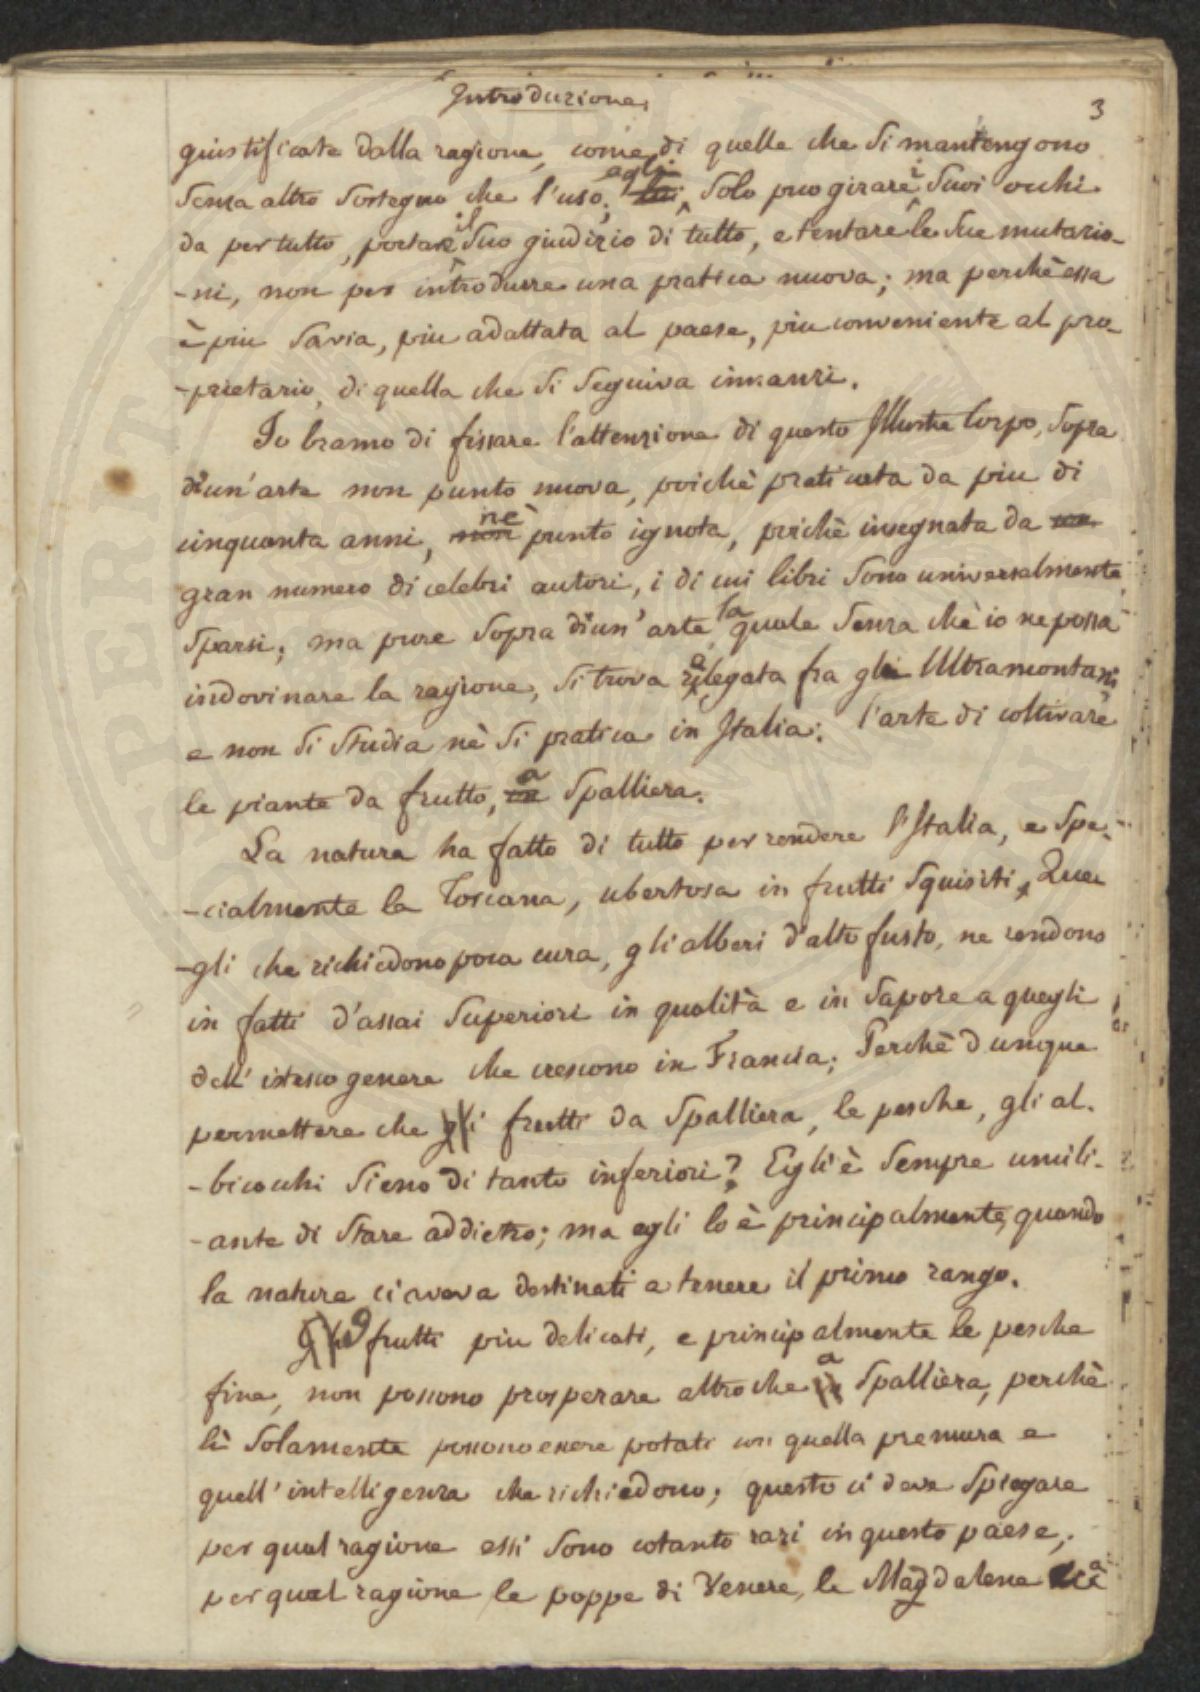 Introduzione.
3
giustificate dalla ragione, come di quelle che si mantengono
senza altro sostegno che l'uso; egli solo puo girare i suoi occhi
da per tutto, portare il suo giudizio di tutto, e tentare le sue mutazio-
-ni, non per introdurre una pratica nuova; ma perchè essa
è piu savia, piu adattata al paese, piu conveniente al pro-
-prietario, di quella che si seguiva innanzi.
Io bramo di fissare l'attenzione di questo Illustre Corpo, sopra
d'un'arte non punto nuova, poichè praticata da piu di
cinquanta anni, non nè punto ignota, perchè insegnata da un
gran numero di celebri autori, i di cui libri sono universalmente
sparsi; ma pure sopra d'un'arte la quale senza chè io ne possa
indovinare la ragione, si trova relegata fra gli Ultramontani
e non si studia nè si pratica in Italia: l'arte di coltivare
le piante da frutto, in a Spalliera.
La natura ha fatto di tutto per rendere l'Italia, e spe-
-cialmente la Toscana, ubertosa in frutti squisiti, Que-
-gli che richiedono poca cura, gli alberi d'alto fusto, ne rendono
in fatti d'assai superiori in qualità e in sapore a quegli
dell' istesso genere che crescono in Francia; Perchè dunque
permettere che gli i frutti da Spalliera, le pesche, gli al-
-bicocchi sieno di tanto inferiori? Egli è sempre umili-
-ante di stare addietro; ma egli lo è principalmente, quando
la natura ci aveva destinati a tenere il primo rango.
frutti piu delicati, e principalmente le pesche
fine, non possono prosperare altro che in a Spalliera, perchè
lì solamente possono essere potati con quella premura e
quell'intelligenza che richiedono; questo ci deve spiegare
per qual ragione essi sono cotanto rari in questo paese;
per qual ragione le poppe di Venere, le Magdalene